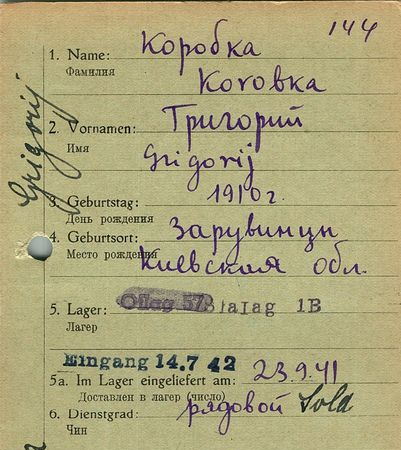 144
1. Name: Коробка
Фамилия
Korobka
2. Vornamen: Григорий
Имя
Grigorij
Grigorij
3. Geburtstag: 1910г.
День рождения
4. Geburtsort: Зарувинцы
Место рождения
Киевская обл.
5. Lager: Oflag 57 Stalag 1B
Лагер
Eingang 14.7 42
5a. Im Lager eingeliefert am: 23.9.41
Доставлен в лагер (число)
6. Dienstgrad: рядовой Sold
Чин